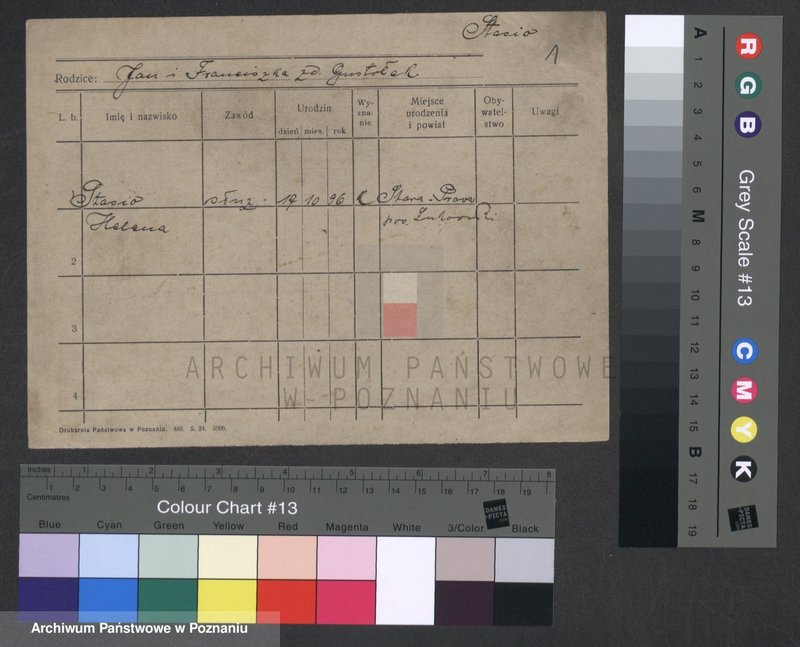 Stasio
1
Rodzice: Jan i Franciszka zd. Gustołek
L. b. Imię i nazwisko Zawód Urodzin dzień mies. rok Wy-zna-nie Miejsce urodzenia i powiat Oby-watel-stwo Uwagi
Stasio służ. 19 10 96 Stara-Prawa
Helena pow. Łukowski
2
3
4
ARCHIWUM PAŃSTWOWE
W POZNANIU
Drukarnia Państwowa w Poznaniu. 486. 5. 21. 5000.
A 1 2 3 4 5 6 M 8 9 10 11 12 13 14 15 B 17 18 19
R G B
Grey Scale #13
C M Y K
DANES
-PICTA
.COM
Inches 1 2 3 4 5 6 7 8
Centimetres 1 2 3 4 5 6 7 8 9 10 11 12 13 14 15 16 17 18 19
Colour Chart #13
DANES
-PICTA
.COM
Blue Cyan Green Yellow Red Magenta White 3/Color Black
Archiwum Państwowe w Poznaniu